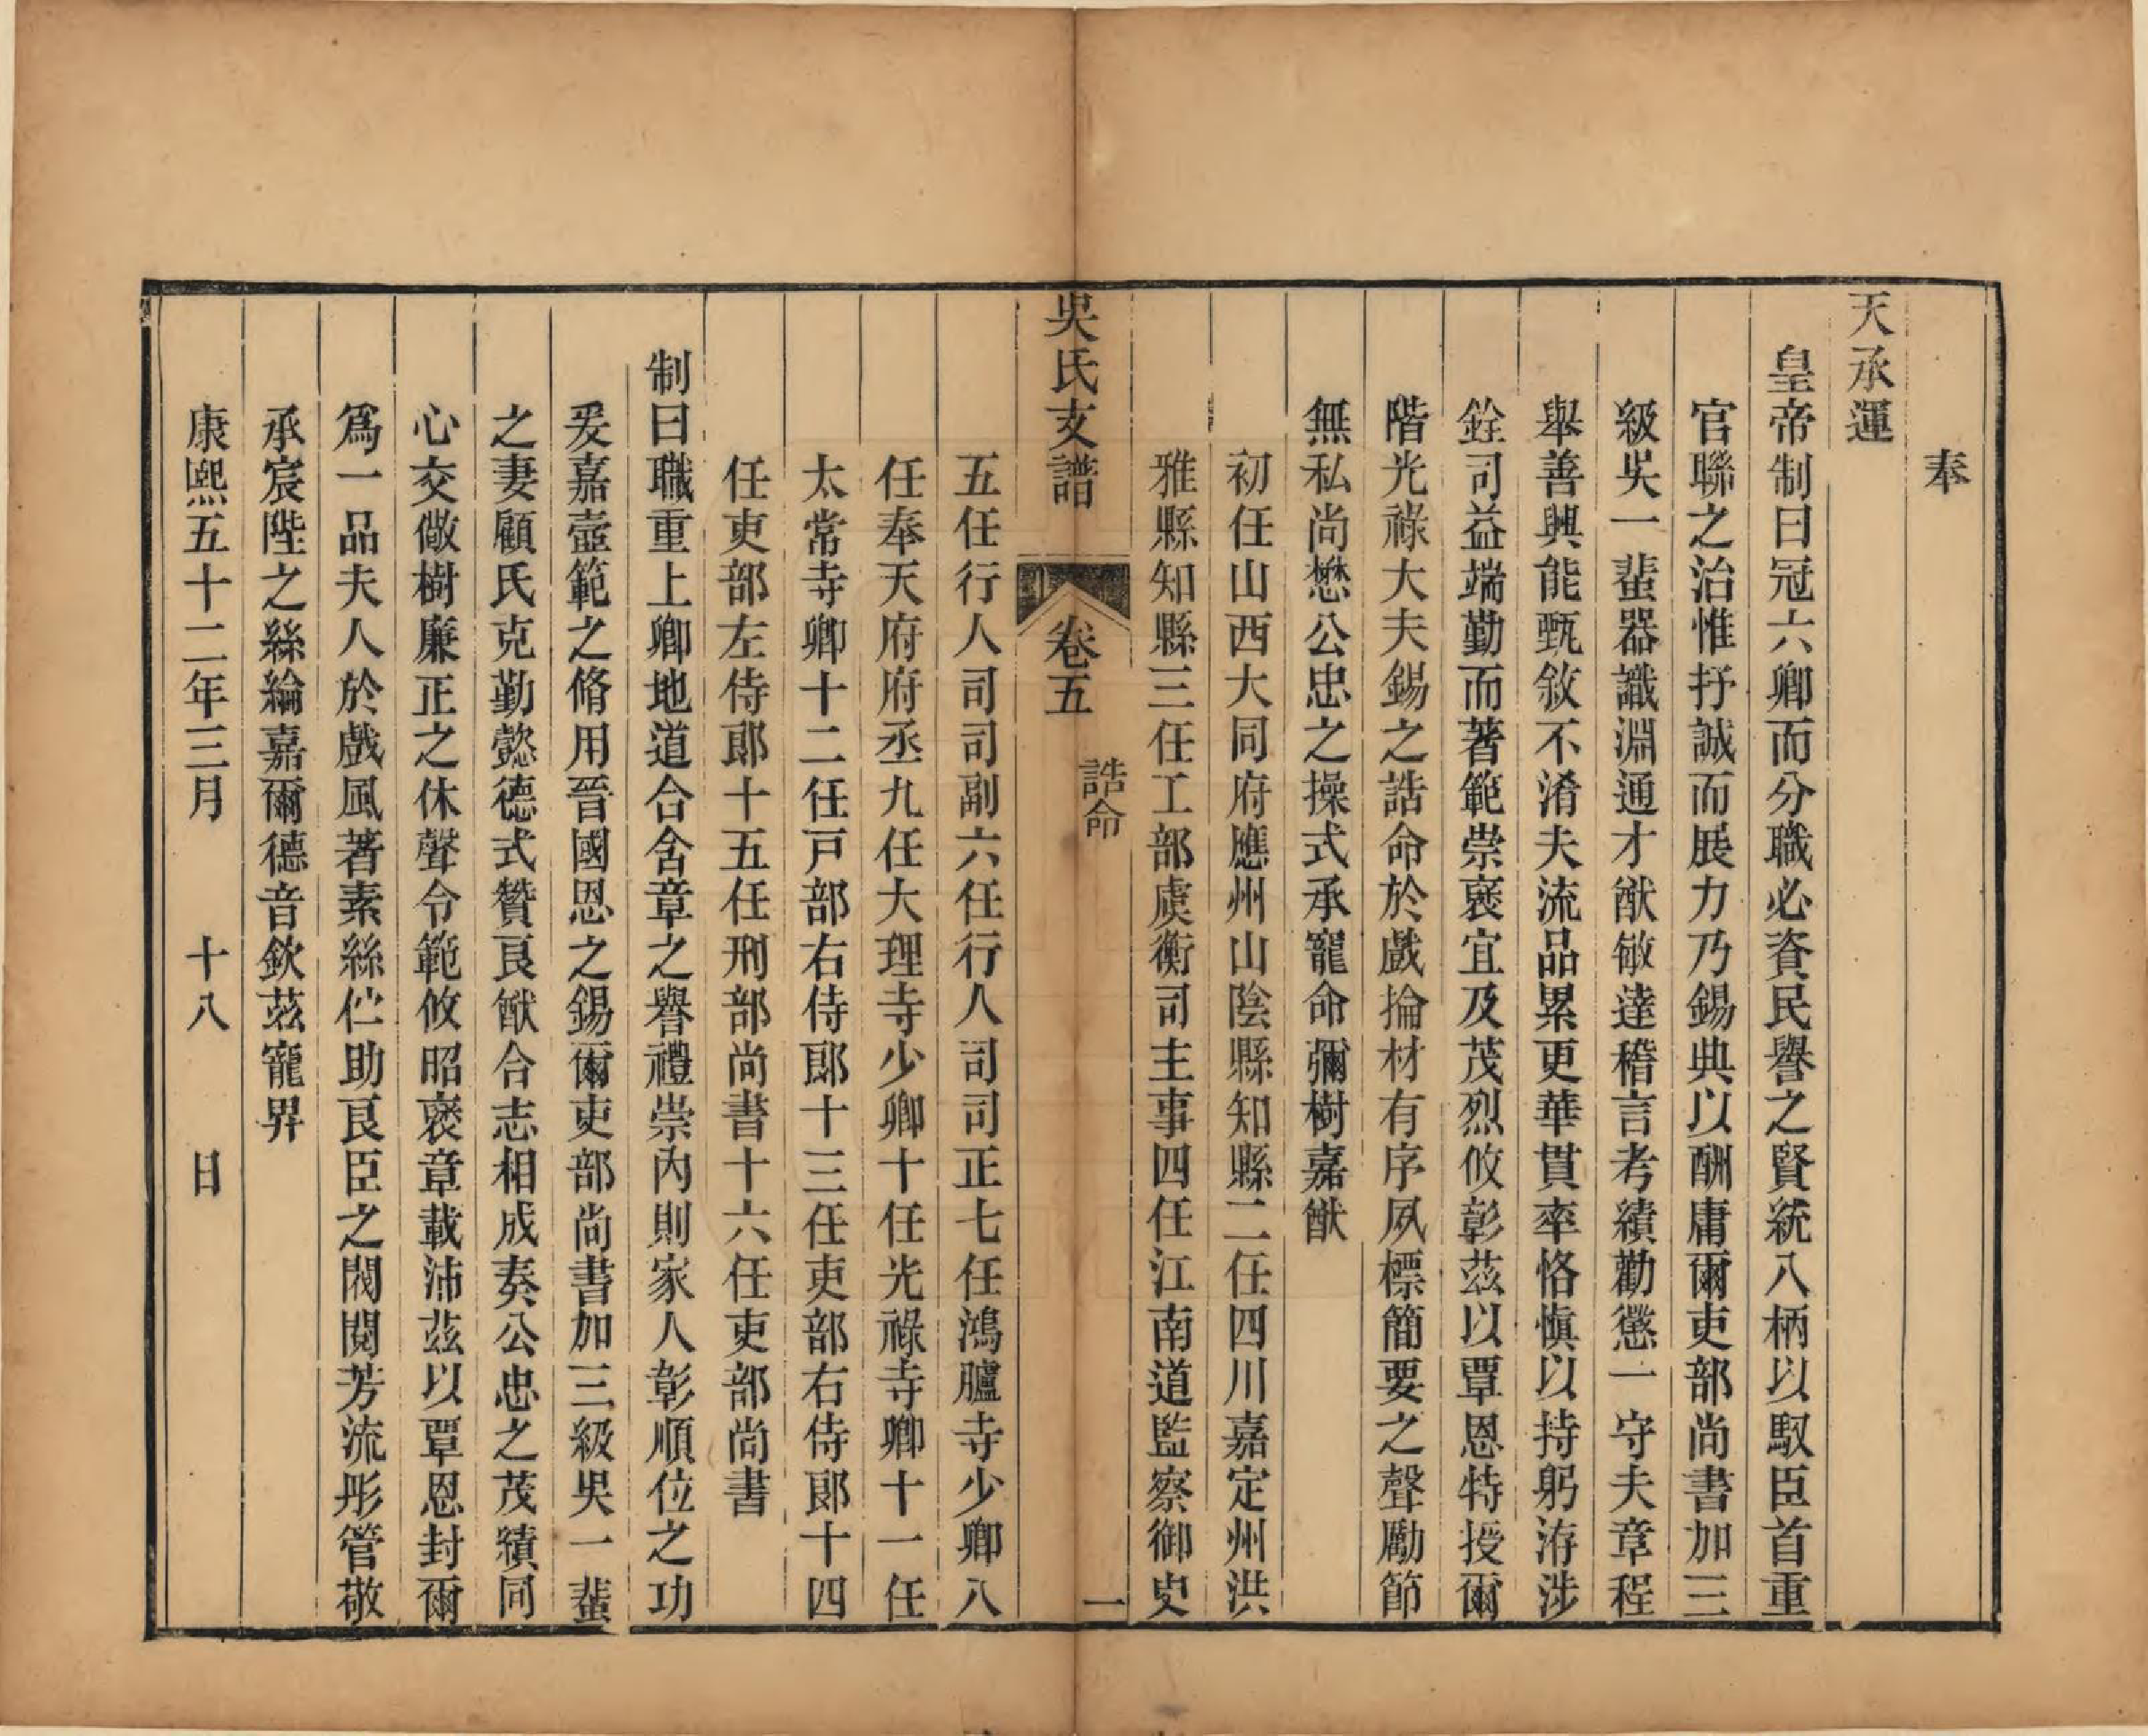 奉
天承運
皇帝制曰冠六卿而分職必資民譽之賢統八柄以馭臣首重
官聯之治惟抒誠而展力乃錫典以酬庸爾吏部尚書加三
級吳一蜚器識淵通才猷敏達稽言考績勸懲一守夫章程
舉善興能甄敘不淆夫流品累更華貫率恪愼以持躬洊涉
銓司益端勤而著範崇襃宜及茂烈攸彰茲以覃恩特授爾
階光祿大夫錫之誥命於戲掄材有序夙標簡要之聲勵節
無私尚懋公忠之操式承寵命彌樹嘉猷
初任山西大同府應州山陰縣知縣二任四川嘉定州洪
雅縣知縣三任工部虞衡司主事四任江南道監察御史
吳氏支譜
卷五
誥命
一
五任行人司司副六任行人司司正七任鴻臚寺少卿八
任奉天府府丞九任大理寺少卿十任光祿寺卿十一任
太常寺卿十二任戸部右侍郞十三任吏部右侍郞十四
任吏部左侍郞十五任刑部尚書十六任吏部尚書
制曰職重上卿地道合含章之譽禮崇內則家人彰順位之功
爰嘉壼範之脩用晉國恩之錫爾吏部尚書加三級吳一蜚
之妻顧氏克勤懿德式贊良猷合志相成奏公忠之茂績同
心交儆樹廉正之休聲令範攸昭襃章載沛茲以覃恩封爾
爲一品夫人於戲風著素絲伫助良臣之閥閱芳流彤管敬
承宸陛之絲綸嘉爾德音欽茲寵畀
康熙五十二年三月 十八 日